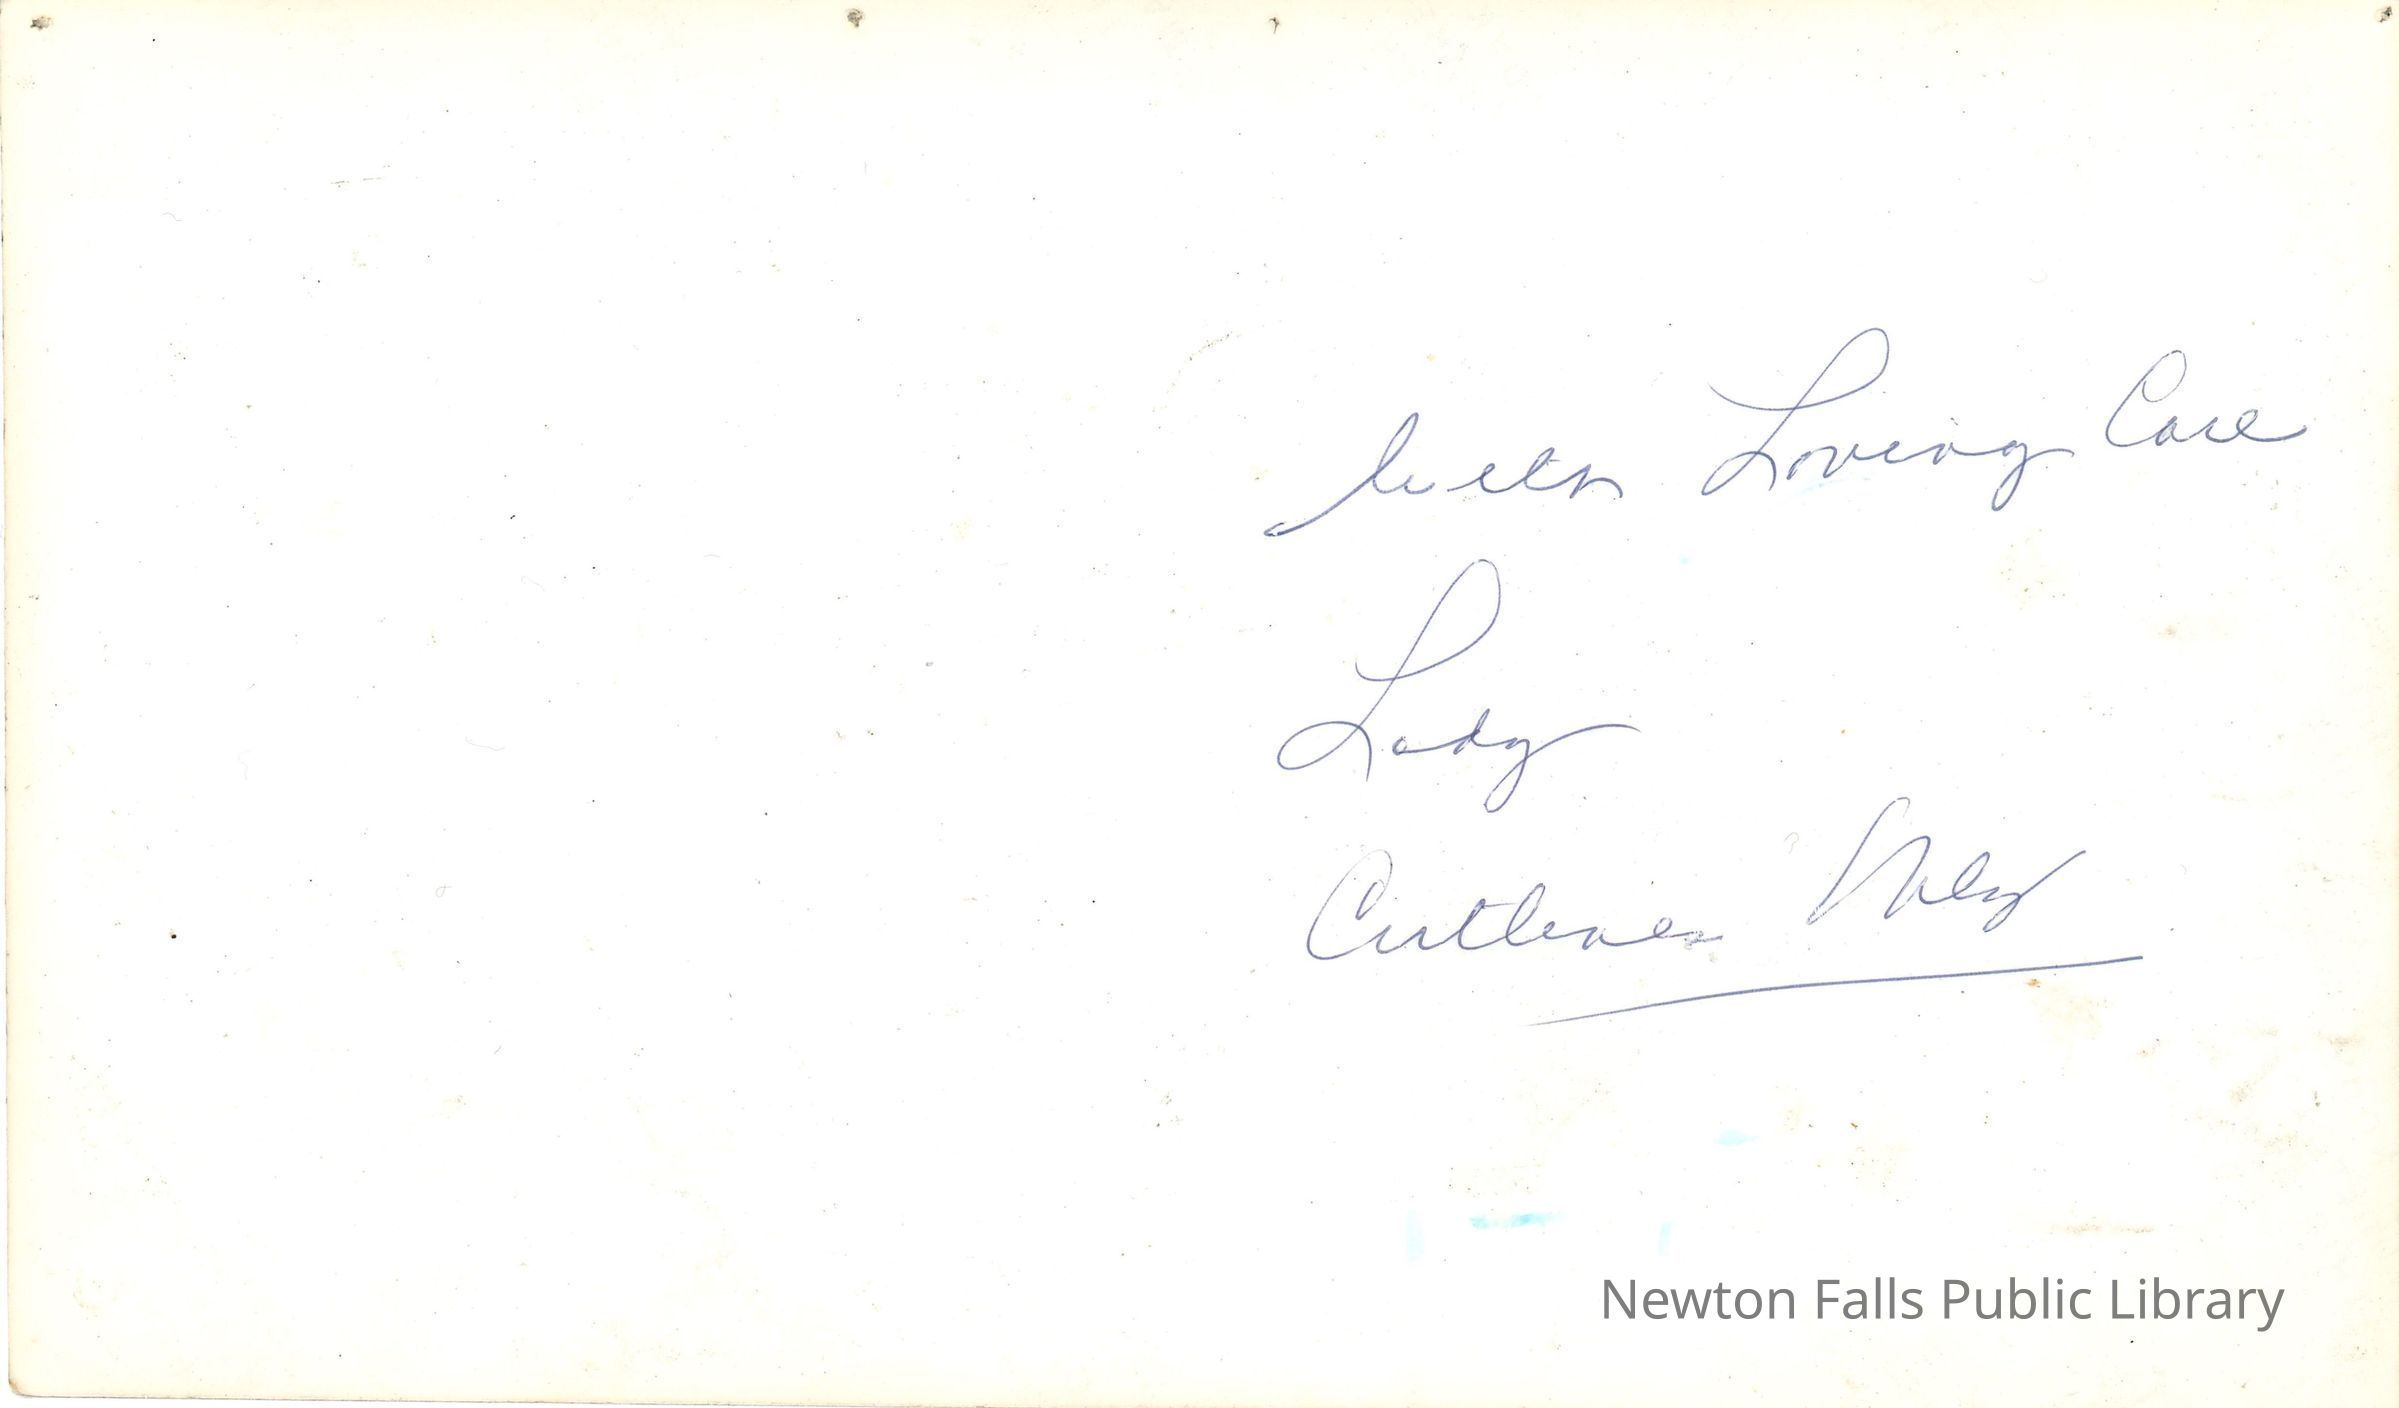 With Loving Care
Lady
Newton Falls Public Library